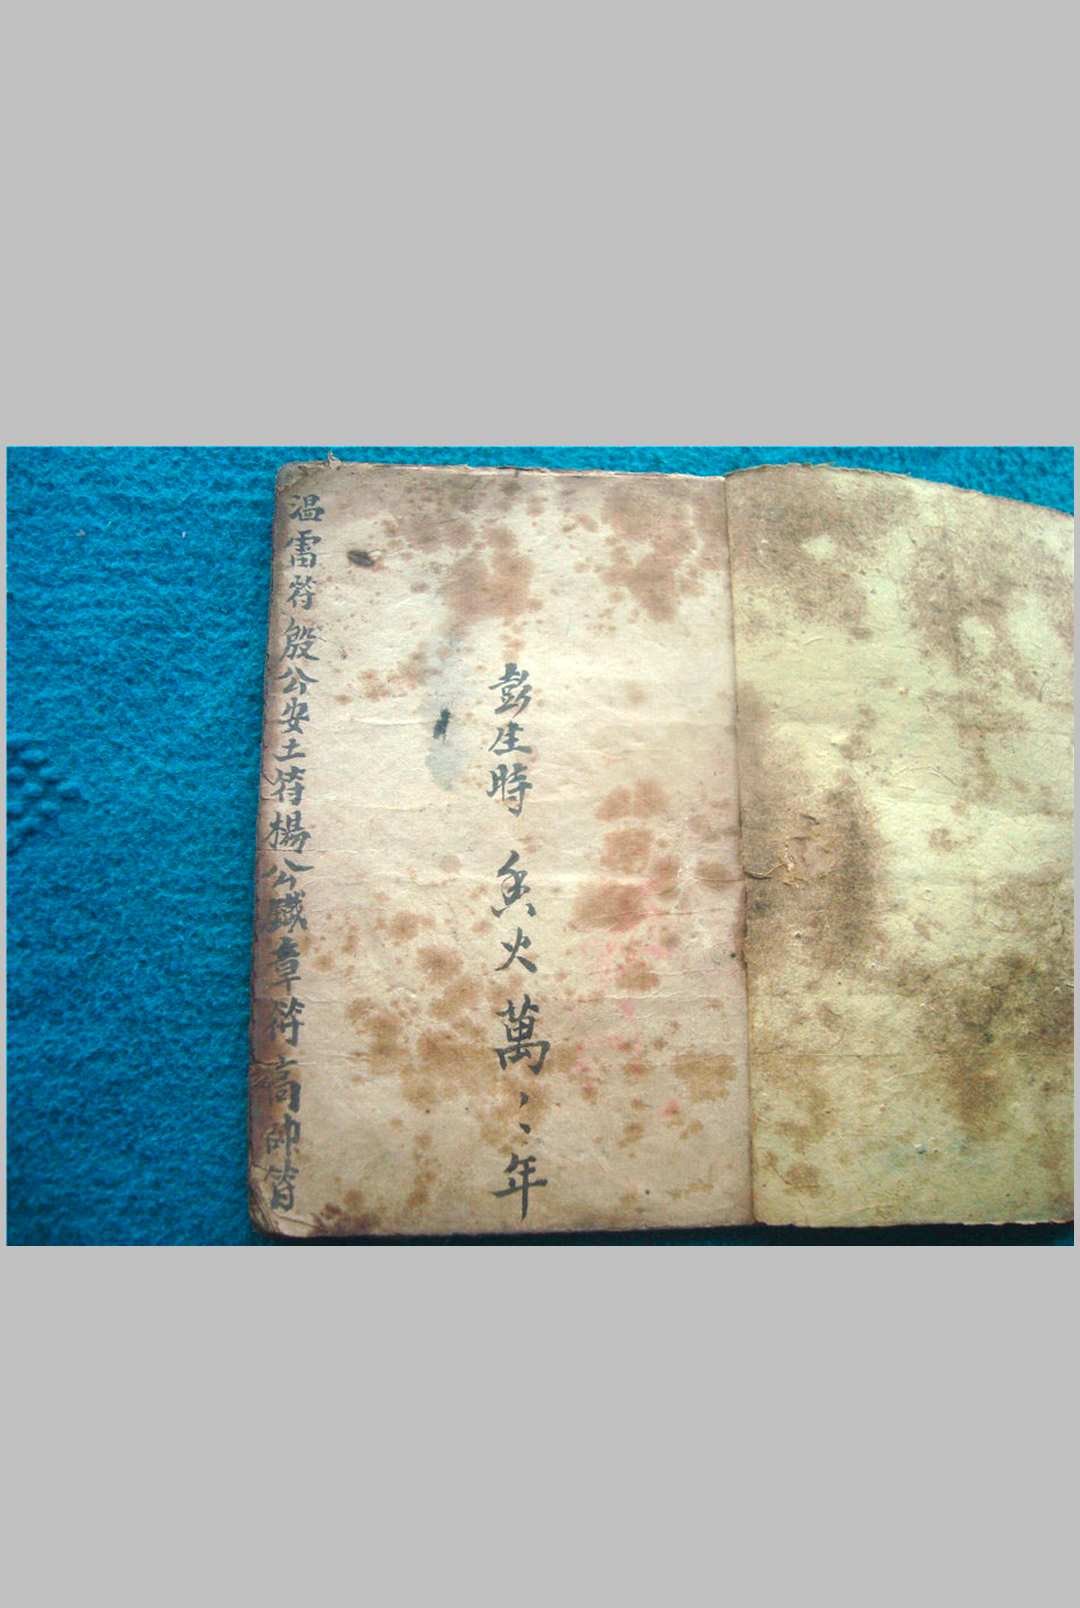 彭生時 香火萬〻年
温雷符殷公安土符楊公鐵章符高帥符